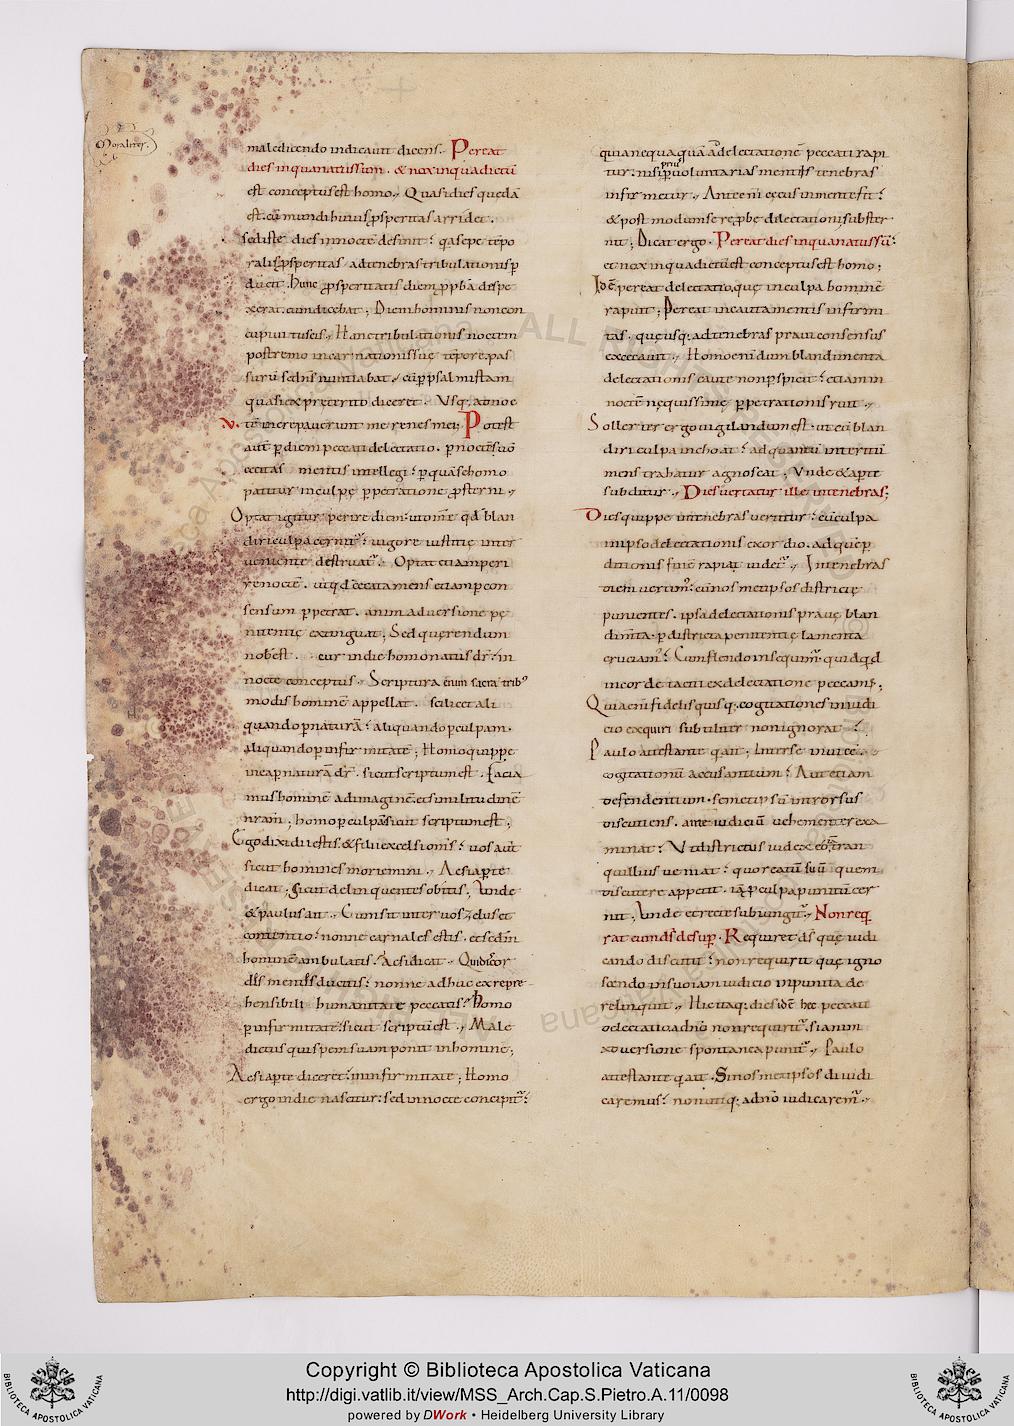 Moraliter.
maledicendo indicauit dicens. Pereat
dies in qua natus sum. & nox in qua dictū
est conceptus est homo. Quasi dies quedā
est. cū mundi huius ꝓsperitas arridet.
sed iste dies in nocte desinit; qa sepe tēpo
ralis ꝓsperitas ad tenebras tribulationis p̱
ducit. Hunc ꝓsperitatis diem ꝓpha despe
xerat. cum dicebat; Diem hominis non con
cupiui tu scis. Hanc tribulationis noctem
postremo incarnationis suę tēpore pas
surū se dn̄s nuntiabat. cū p̱ psalmistam
quasi ex pręterito diceret. Vsq; ad noc
tē increpauerunt me renes mei; Potest
autē p̱ diem peccati delectatio. p̱ noctē suo
cecitas mentis intellegi; p̱ quā se homo
patitur in culpę p̱petratione ꝓsterni.
Optat igitur perire diem. ut omē qd̄ blan
diri culpa cernit̄; uigore iustitię inter
ueniente destruat̄. Optat etiam peri
re noctē. ut qd̄ cęcata mens etiam p̱ con
sensum p̱petrat. animaduersione pę
nitentię extinguat; Sed quęrendum
nobis est. cur in die homo natus dr̄; in
nocte conceptus. Scriptura enim sacra trib;
modis hominē appellat. scilicet ali
quando p̱ naturā; aliquando p̱ culpam.
aliquando p̱ infirmitatē; Homo quippe
uicap̱ naturā dr̄. sicut scriptum est. Facia
mus hominē ad imaginē. et similitudinē
nram; homo p̱ culpā sicut scriptum est;
Ego dixi dii estis. & filii excelsi om̄s; uos aut
sicut homines moriemini. Ac si aperte
dicat; sicut delinquentes obitis. Vnde
& paulus ait. Cum sit inter uos zelus et
contentio; nonne carnales estis. et scdm̄
hominē ambulatis; Ac si dicat. Qui discor
des mentes ducitis; nonne adhuc ex repre
hensibili humanitate peccatis; Homo
p̱ infirmitatē. sicut scriptū est. Male
dictus qui spem suam ponit in homine;
Ac si apte diceret; in infirmitate; Homo
ergo in die nascitur; sed in nocte concipit̄;
quia nequaquā a delectatione peccati rapi
tur. nisi prius p̱ uoluntarias mentis tenebras
infirmetur. Ante n̄i cęcus in mente fit;
& post modum se reprobę dilectationi subster
nit; Dicat ergo. Pereat dies in qua natus sū;
et nox in qua dictū est conceptus est homo;
Idē. pereat delectatio. quę in culpa hominē
rapuit; Pereat incauta mentis infirmi
tas. que usq; ad tenebras praui consensus
excecauit. Homo eni dum blandimenta
delectationis caute non p̱spicit; etiam in
noctē nęquissimę p̱petrationis ruit.
Sollerter ergo uigilandum est. ut cū blan
diri culpa inchoat; ad quantū interitū
mens trahatur agnoscat; Vnde & apte
subditur. Dies uertatur ille in tenebras;
Dies quippe in tenebras uertitur; cū culpa
in ipso delectationis exordio. ad quē p̱
ditionis finē rapiat uidet̄. In tenebras
diem uertim̄; cū nos metipsos districtę
punientes. ipsa delectationis prauę blan
dim̄ta. p̱ districta penitentię lamenta
cruciam̄; Cum flendo insequim̄. quidqd
in corde taciti ex delectatione peccam̄;
Quia eni fidelis quisq; cogitationes in iudi
cio exquiri subtiliter non ignorat;
Paulo attestante q ait; Inter se inuicē.
cogitationū accusantium; Aut etiam
defendentium. semetipsū introrsus
discutiens. ante iudiciū uehementer exa
minat; Vt districtus iudex eo tran
quillius ueniat; quo reatū suū quem
discutere appetit. iā p̱ culpa punitū cer
nit. Vnde et recte subiungit̄. Non req
rat eum d̄s desup̱. Requiret d̄s quę iudi
cando discutit; non requirit quę igno
scendo in suo iam iudicio inpunita de
relinquit. Hic itaq; dies idē hęc peccati
delectatio a dn̄o non requirit̄. si anim
aduersione spontanea punit̄. Paulo
attestante q ait. Si nos met ipsos diiudi
caremus; non utiq; a dn̄o iudicarem̄.
Copyright © Biblioteca Apostolica Vaticana
http://digi.vatlib.it/view/MSS_Arch.Cap.S.Pietro.A.11/0098
powered by DWork • Heidelberg University Library
BIBLIOTECA APOSTOLICA VATICANA
BIBLIOTECA APOSTOLICA VATICANA